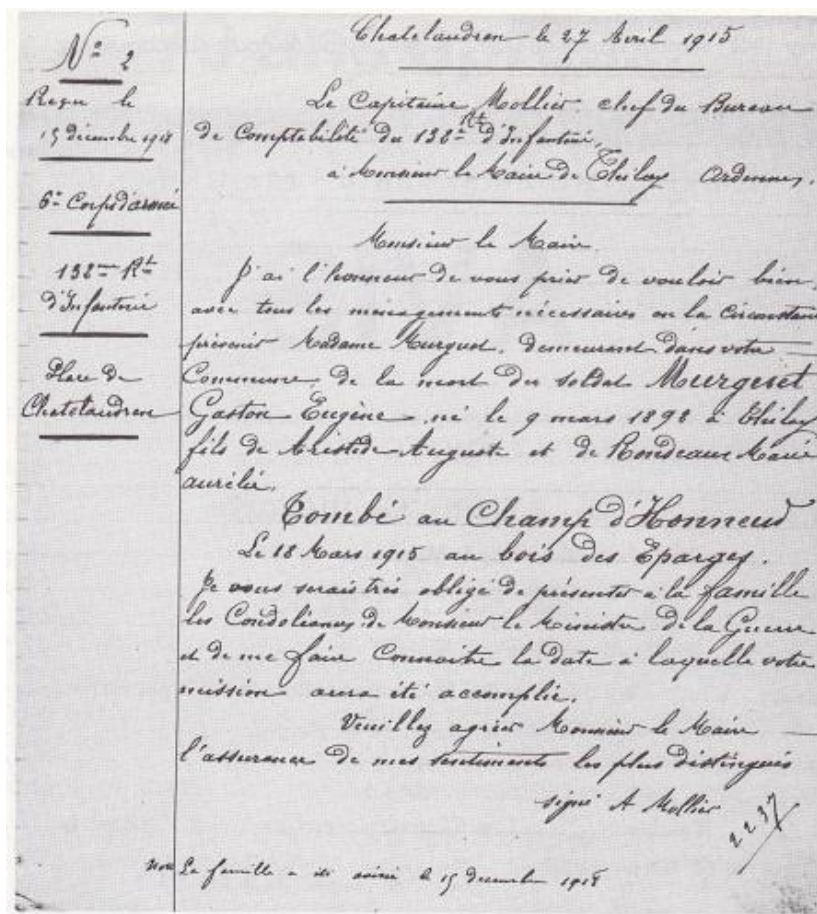 N° 2
Reçu le
15 décembre 1918
6e Corps d'armée
132ème Rt
d'Infanterie
Place de
Chatelaudren
Chatelaudren le 27 Avril 1915
Le Capitaine Mollier chef du Bureau
de Comptabilité du 132ème Rt d'Infanterie,
à Monsieur le Maire de Thilay Ardennes.
Monsieur le Maire.
J'ai l'honneur de vous prier de vouloir bien,
avec tous les ménagements nécessaires en la circonstance
prévenir Madame Murguet, demeurant dans votre
Commune, de la mort du soldat Murguet
Gaston Eugène, né le 9 mars 1892 à Thilay
fils de Aristide Auguste et de Rondeaux Marie
aurélie.
Tombé au Champ d'Honneur
Le 18 Mars 1915 au bois des Eparges.
Je vous serais très obligé de présenter à la famille
les Condoléances de Monsieur le Ministre de la Guerre
et de me faire Connaitre la date à laquelle votre
mission aura été accomplie.
Veuillez agréer Monsieur le Maire
l'assurance de mes sentiments les plus distingués
signé A Mollier
2237
Note La famille a été avisé le 15 décembre 1918